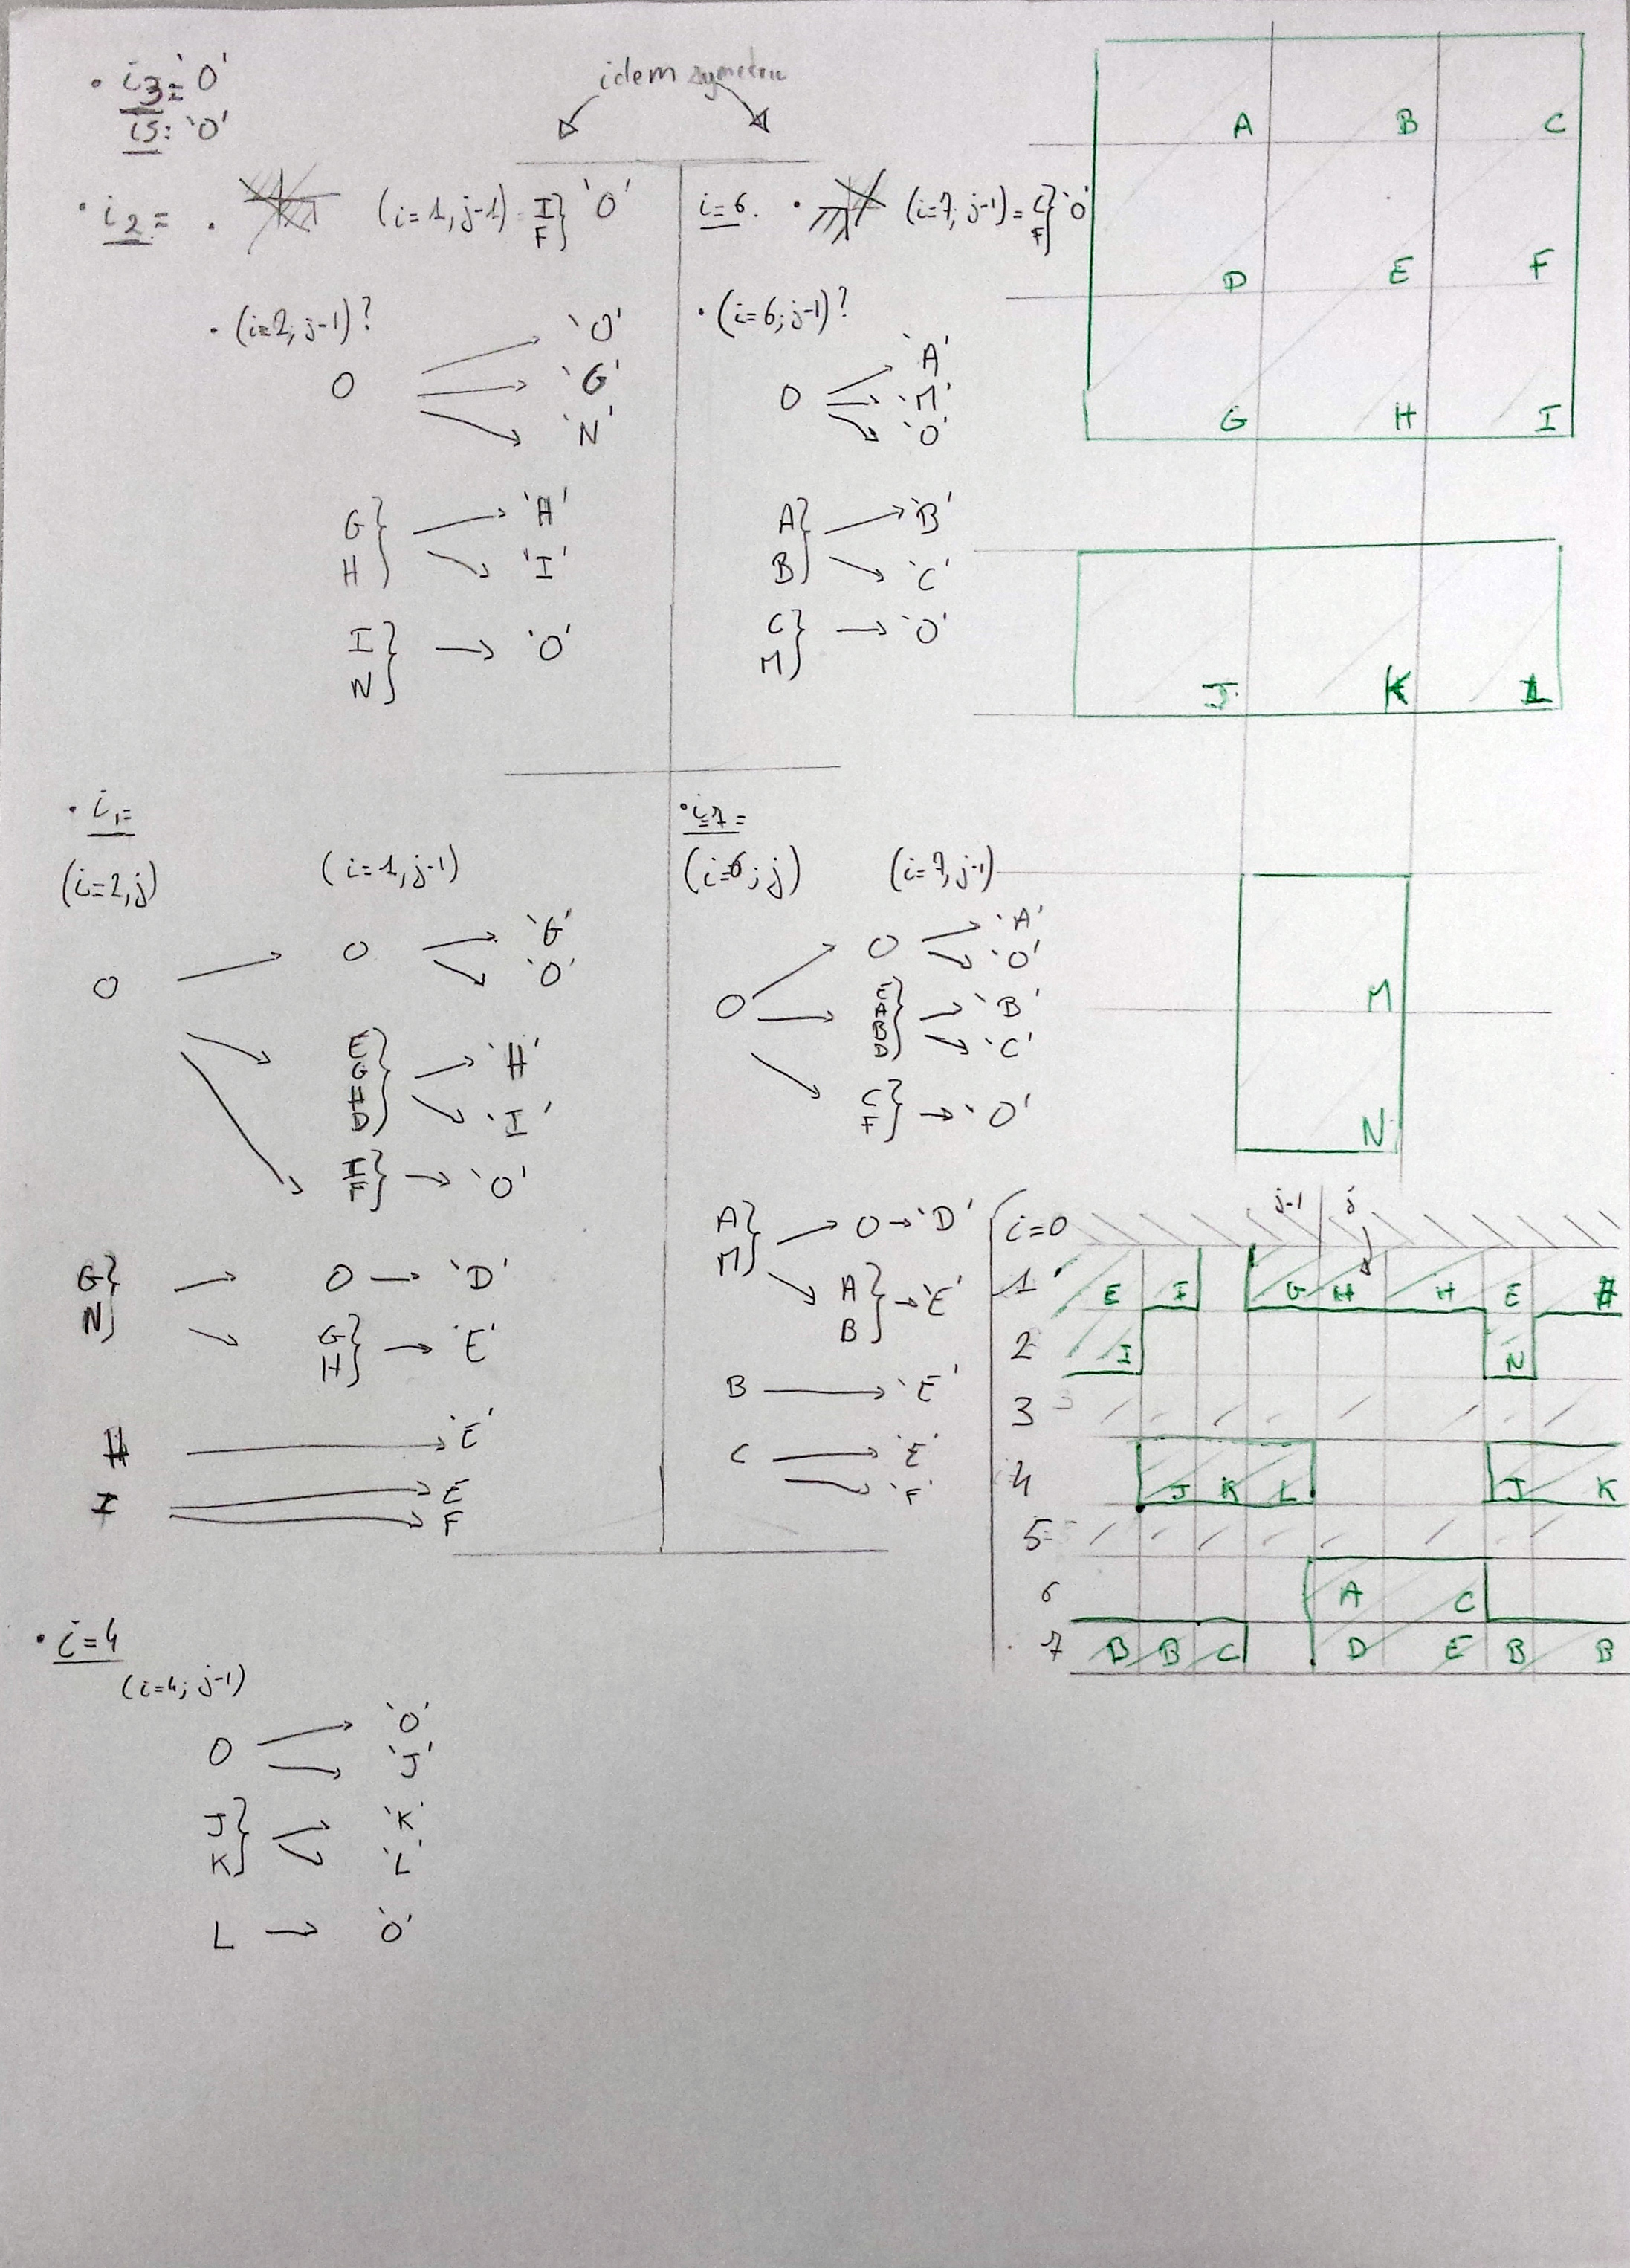 • i3= 'O'
i5: 'O'
idem symetric
• i2= • (i=1, j-1) = I } 'O'
F
• (i=2, j-1)?
O → 'O'
→ 'G'
→ 'N'
G } → 'H'
H } → 'I'
I } → 'O'
N
i=6. • (i=7; j-1) = C } 'O'
F
• (i=6; j-1)?
O → 'A'
→ 'M'
→ 'O'
A } → 'B'
B } → 'C'
C } → 'O'
M
• i1=
(i=2, j) (i=1, j-1)
O → O → 'G'
→ 'O'
E
G
H
D } → 'H'
→ 'I'
I
F } → 'O'
G } → O → 'D'
N } → G } → 'E'
H
H → 'E'
I → E
→ F
• i=7=
(i=6; j) (i=7, j-1)
O → O → 'A'
→ 'O'
E
A
B
D } → 'B'
→ 'C'
C
F } → 'O'
A } → O → 'D'
M } → A } → 'E'
B
B → 'E'
C → 'E'
→ 'F'
• i=4
(i=4; j-1)
O → 'O'
→ 'J'
J } → 'K'
K } → 'L'
L → 'O'
A B C
D E F
G H I
J K L
M
N
j-1 j
i=0
1 E I G H H E H
2 I N
3
4 J K L J K
5
6 A C
7 B B C D E B B